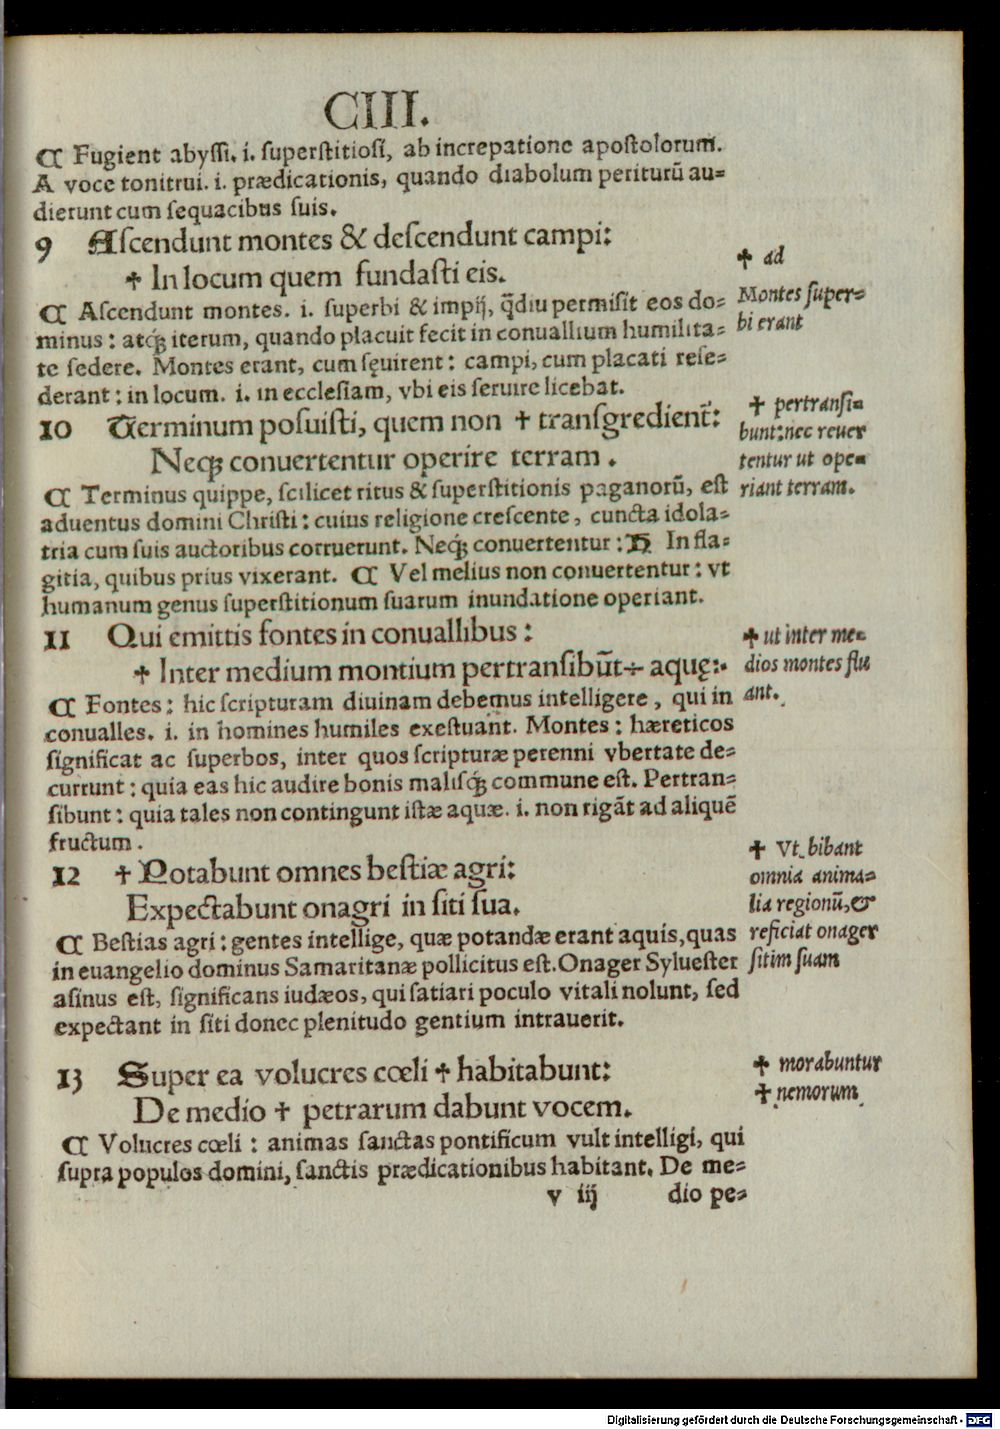 CIII.
¶ Fugient abyſſi. i. ſuperſtitioſi, ab increpatione apoſtolorum.
A voce tonitrui. i. prædicationis, quando diabolum periturū au⸗
dierunt cum ſequacibus ſuis.
9 Aſcendunt montes & deſcendunt campi:
✝ In locum quem fundaſti eis.
✝ ad
¶ Aſcendunt montes. i. ſuperbi & impij, q̃diu permiſit eos do⸗
Montes ſuper⸗
minus: atqꝫ iterum, quando placuit fecit in conuallium humilita⸗
bi erant
te ſedere. Montes erant, cum ſęuirent: campi, cum placati reſe⸗
derant: in locum. i. in eccleſiam, vbi eis ſeruire licebat.
10 Terminum poſuiſti, quem non ✝ tranſgredient̃:
Neqꝫ conuertentur operire terram.
✝ pertranſi⸗
bunt: nec reuer
tentur ut ope⸗
riant terram.
¶ Terminus quippe, ſcilicet ritus & ſuperſtitionis paganorū, eſt
aduentus domini Chriſti: cuius religione creſcente, cuncta idola⸗
tria cum ſuis auctoribus corruerunt. Neqꝫ conuertentur: H In fla⸗
gitia, quibus prius vixerant. ¶ Vel melius non conuertentur: vt
humanum genus ſuperſtitionum ſuarum inundatione operiant.
11 Qui emittis fontes in conuallibus:
✝ Inter medium montium pertranſibūt÷ aquę:·
✝ ut inter me⸗
dios montes flu
ant.
¶ Fontes: hic ſcripturam diuinam debemus intelligere, qui in
conualles. i. in homines humiles exeſtuant. Montes: hæreticos
ſignificat ac ſuperbos, inter quos ſcripturæ perenni vbertate de⸗
currunt: quia eas hic audire bonis maliſqꝫ commune eſt. Pertran⸗
ſibunt: quia tales non contingunt iſtæ aquæ. i. non rigāt ad aliquē
fructum.
12 ✝ Potabunt omnes beſtiæ agri:
Expectabunt onagri in ſiti ſua.
✝ Vt bibant
omnia anima⸗
lia regionū, &
reficiat onager
ſitim ſuam
¶ Beſtias agri: gentes intellige, quæ potandæ erant aquis, quas
in euangelio dominus Samaritanæ pollicitus eſt. Onager Sylueſter
aſinus eſt, ſignificans iudæos, qui ſatiari poculo vitali nolunt, ſed
expectant in ſiti donec plenitudo gentium intrauerit.
13 Super ea volucres cœli ✝ habitabunt:
De medio ✝ petrarum dabunt vocem.
✝ morabuntur
✝ nemorum
¶ Volucres cœli: animas ſanctas pontificum vult intelligi, qui
ſupra populos domini, ſanctis prædicationibus habitant. De me⸗
v iij dio pe⸗
Digitalisierung gefördert durch die Deutsche Forschungsgemeinschaft - DFG